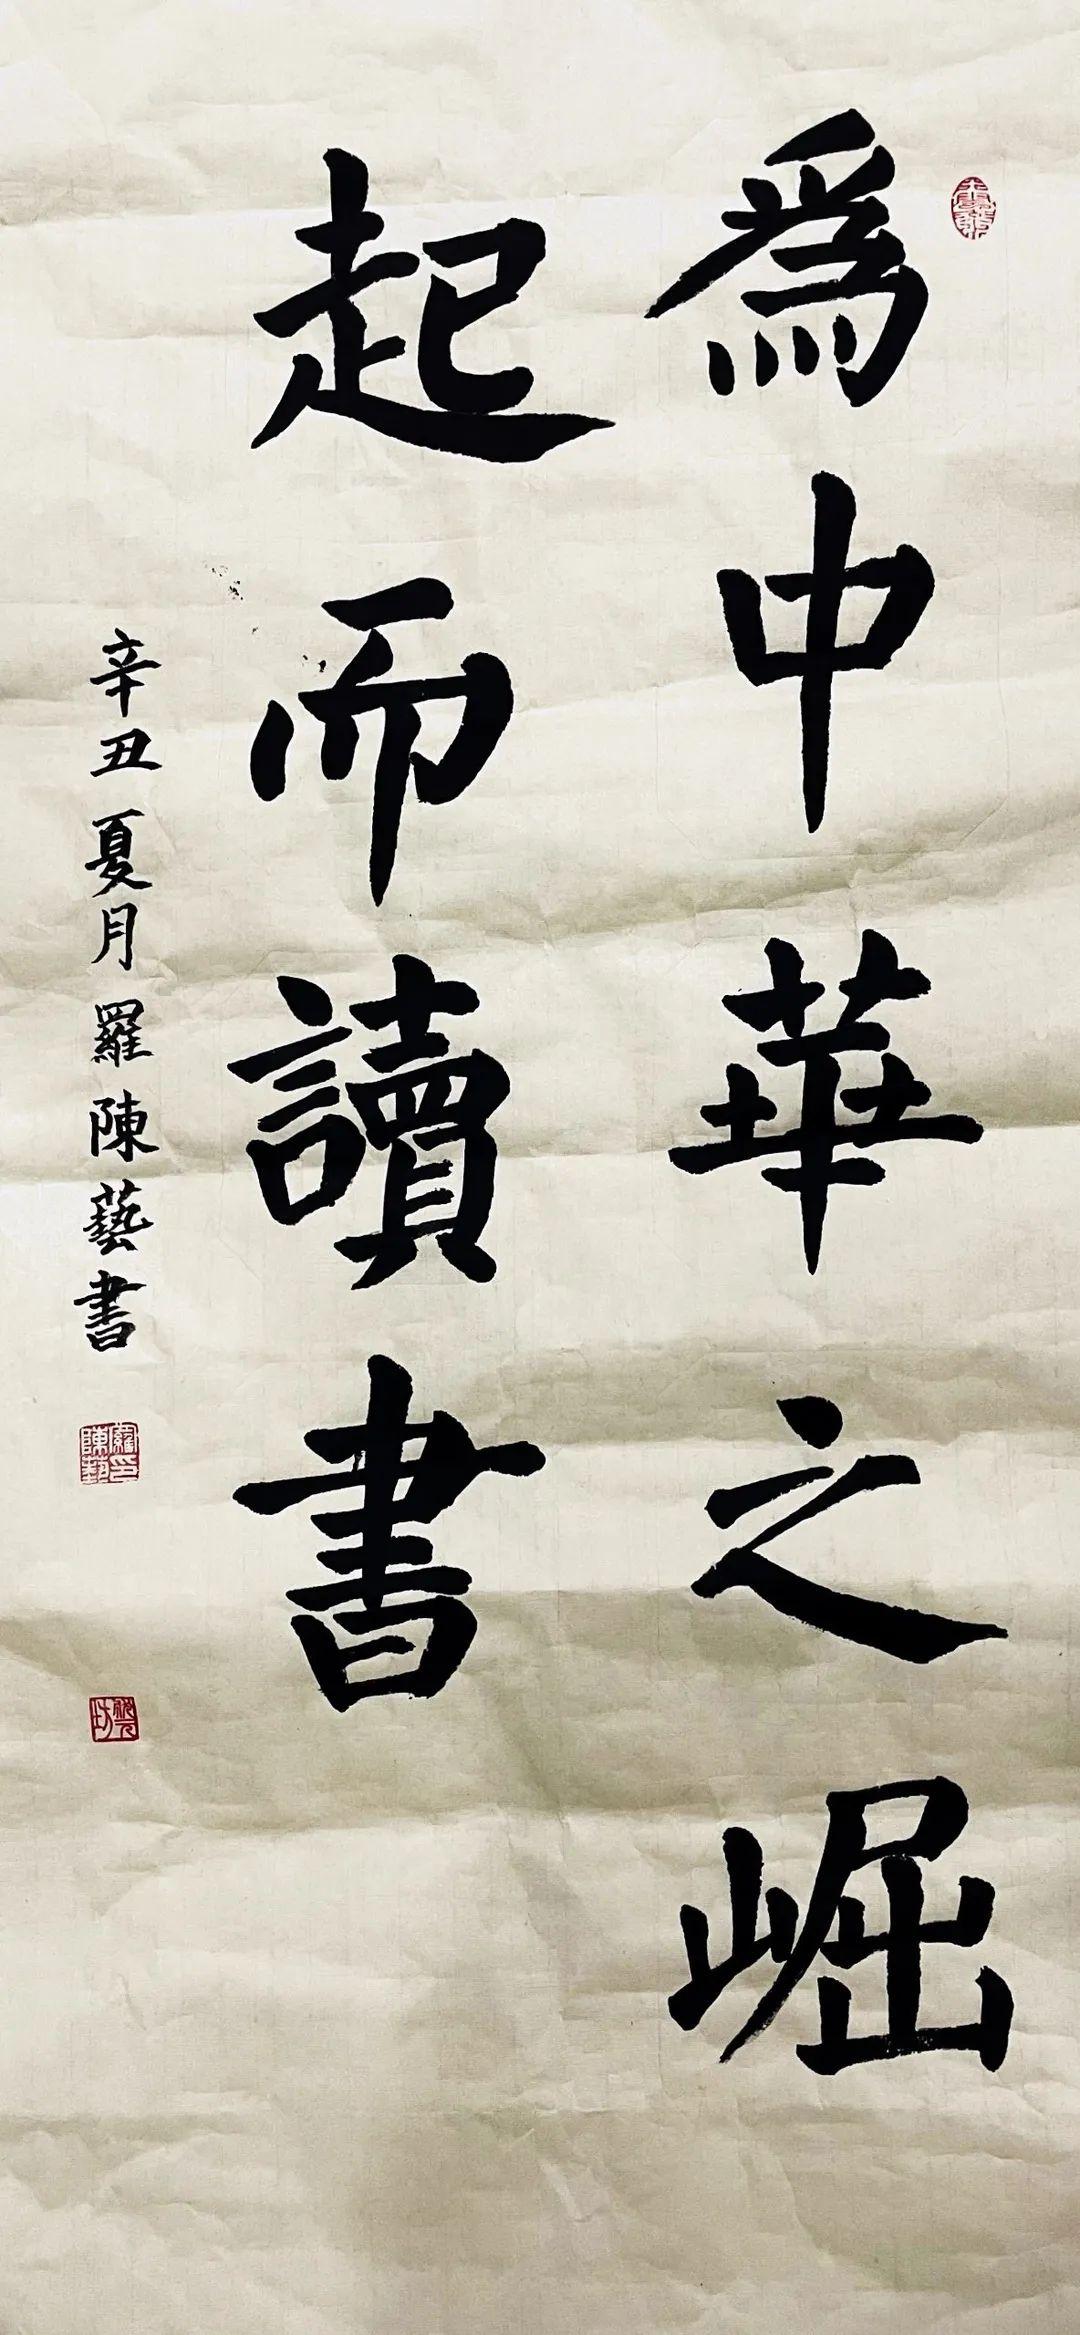 爲中華之崛
起而讀書
辛丑夏月羅陳藝書
羅印陳藝